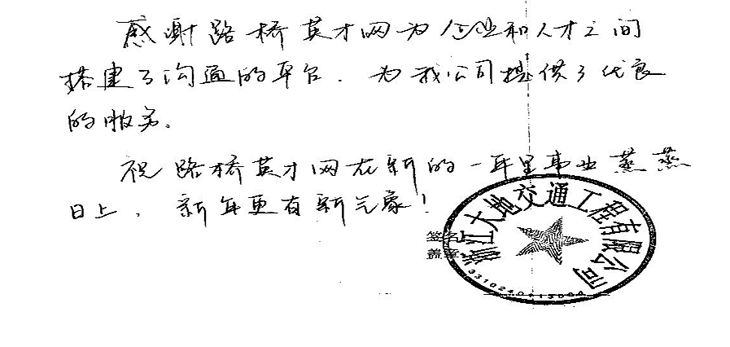 感谢路桥英才网为企业和人才之间
搭建了沟通的平台．为我公司提供了优良
的服务。
祝路桥英才网在新的一年里事业蒸蒸
日上，新年更有新气象！
签名
盖章
浙江大地交通工程有限公司